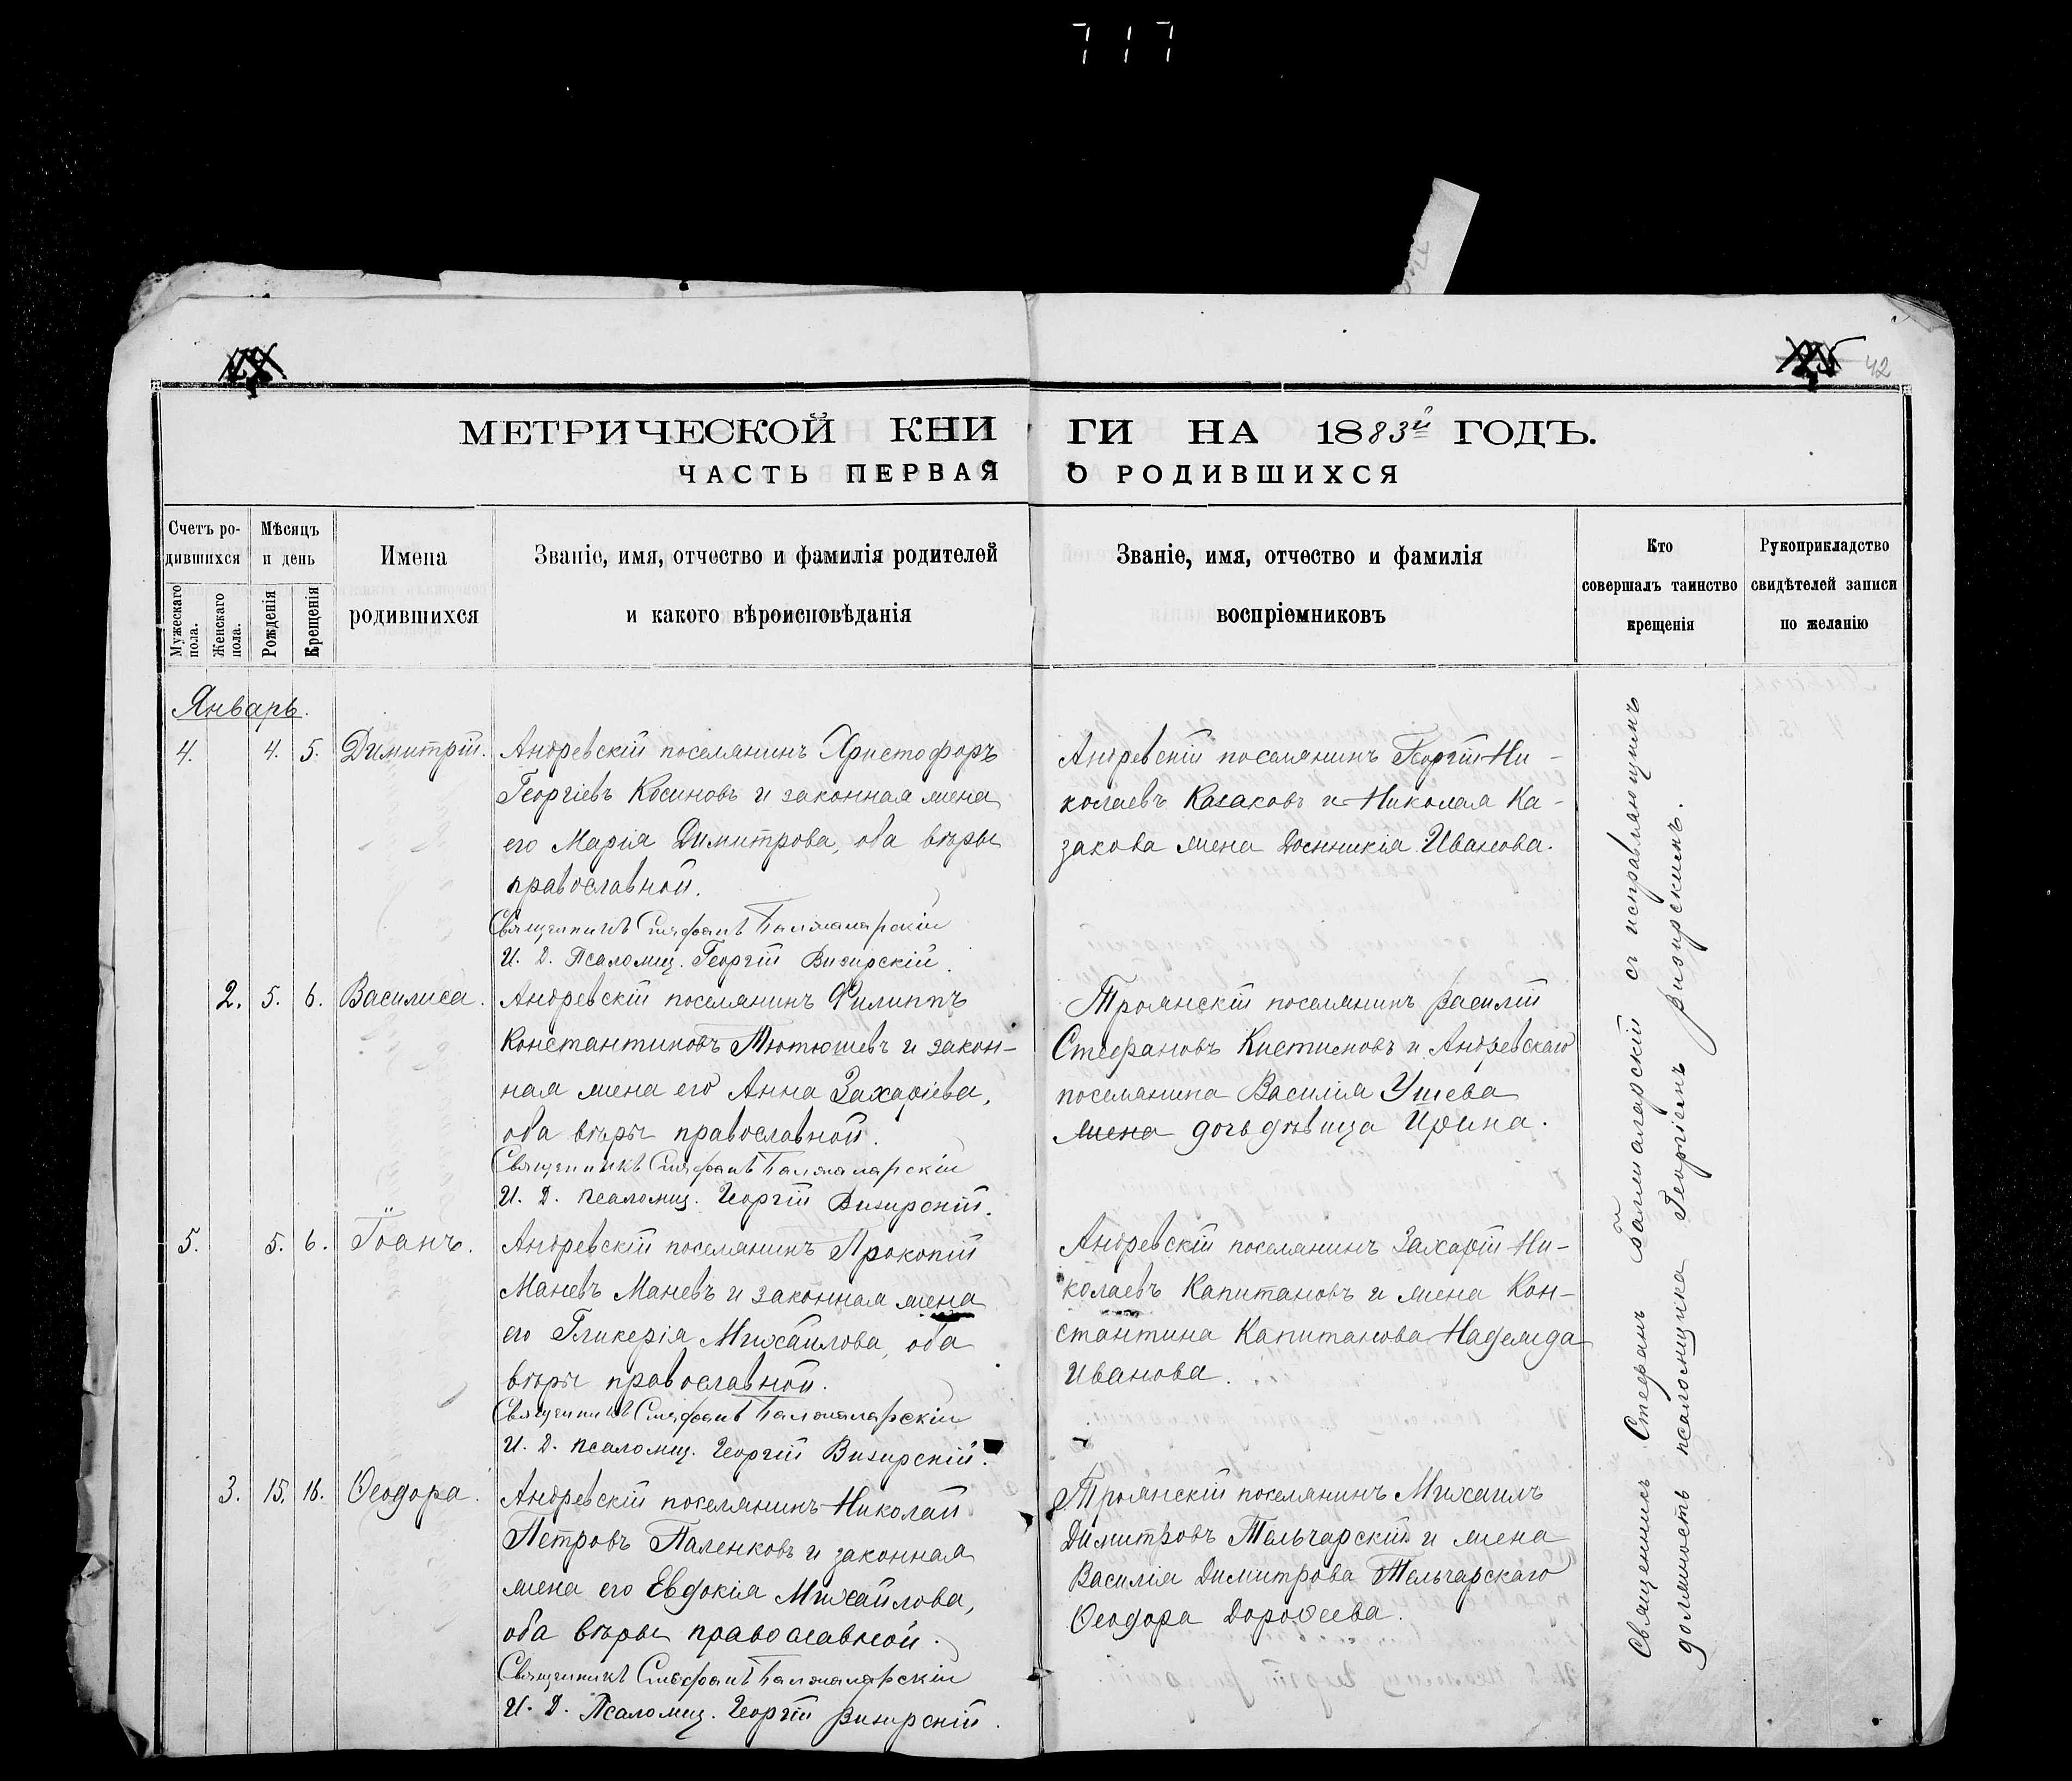 717
42
МЕТРИЧЕСКОЙ КНИГИ НА 1883й ГОДЪ.
ЧАСТЬ ПЕРВАЯ О РОДИВШИХСЯ
Счетъ родившихся
Мужескаго пола.
Женскаго пола.
Мѣсяцъ и день
Рожденія
Крещенія
Имена
родившихся
Званіе, имя, отчество и фамилія родителей
и какого вѣроисповѣданія
Званіе, имя, отчество и фамилія
воспріемниковъ
Кто
совершалъ таинство
крещенія
Рукоприкладство
свидѣтелей записи
по желанію
Январь.
4. 4. 5. Димитрій.
Андревскій поселянинъ Христофоръ
Георгіевъ Косиновъ и законная жена
его Марія Димитрова, оба вѣры
православной.
Священникъ Стефанъ
И. Д. Псаломщ. Георгій Визирскій.
Андревскій поселянинъ Георгій Ни-
колаевъ Казаковъ и Николая Ка-
закова жена Доминикія Иванова.
2. 5. 6. Василиса.
Андревскій поселянинъ Филиппъ
Константиновъ Тютюшевъ и закон-
ная жена его Анна Захаріева,
оба вѣры православной.
Священникъ Стефанъ
И. Д. псаломщ. Георгій Визирскій.
Троянскій поселянинъ Василій
Стефановъ и Андревскаго
поселянина Василія
жена дочь дѣвица Ирина.
5. 5. 6. Іоанъ.
Андревскій поселянинъ Прокопій
Маневъ Маневъ и законная жена
его Гликерія Михайлова, оба
вѣры православной.
Священникъ Стефанъ
И. Д. псаломщ. Георгій Визирскій.
Андревскій поселянинъ Захарій Ни-
колаевъ Капитановъ и жена Кон-
стантина Капитанова Надежда
Иванова.
3. 15. 16. Ѳеодора.
Андревскій поселянинъ Николай
Петровъ Паленковъ и законная
жена его Евдокія Михайлова,
оба вѣры православной.
Священникъ Стефанъ
И. Д. Псаломщ. Георгій Визирскій.
Троянскій поселянинъ Михаилъ
Димитровъ Тельчарскій и жена
Василія Димитрова Тельчарскаго
Ѳеодора Дороѳеева.
Священникъ Стефанъ съ исправляющимъ
должность псаломщика Георгіемъ Визирскимъ.